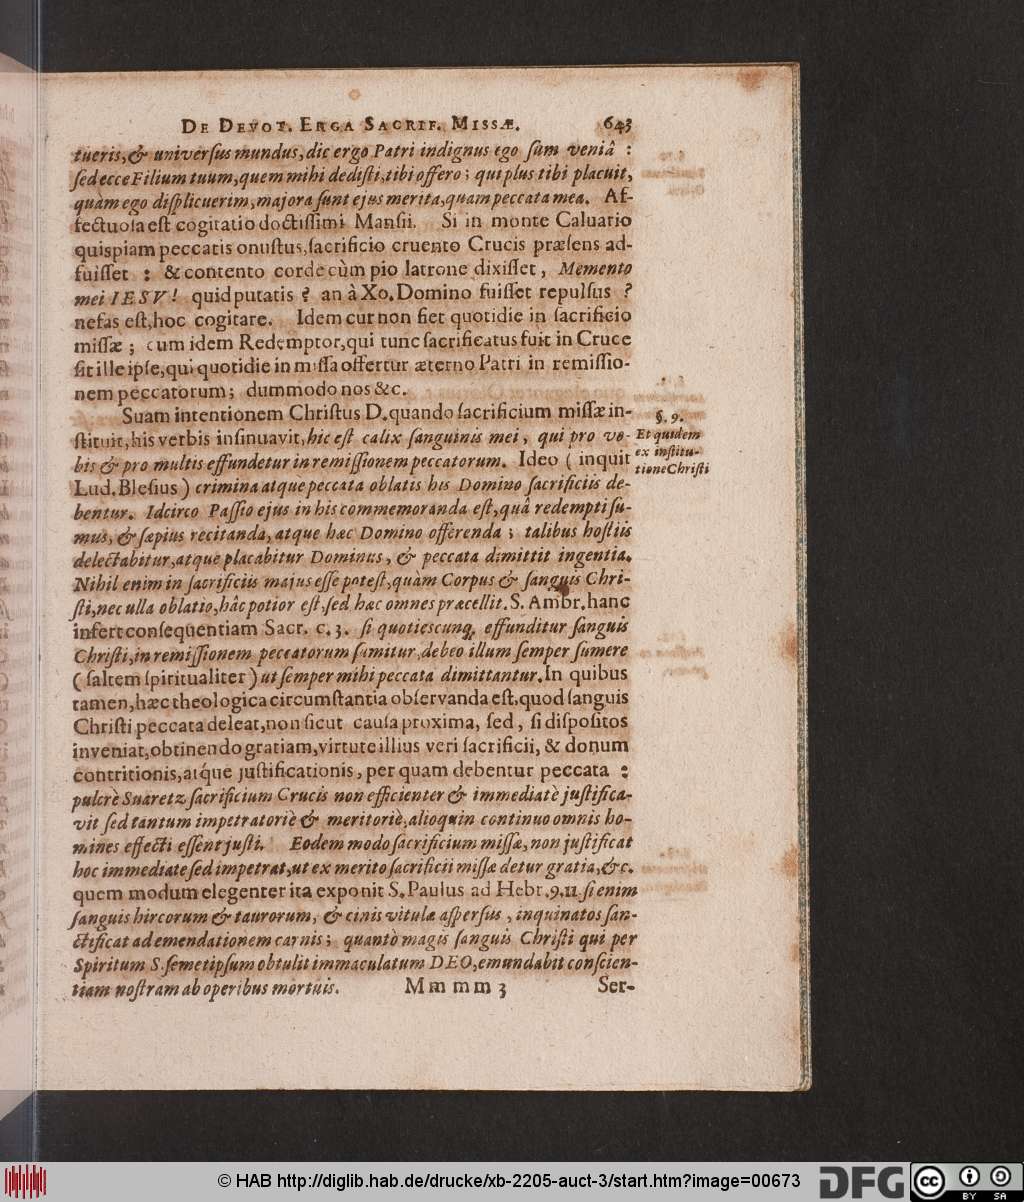 DE DEVOT. ERGA SACRIF. MISSÆ. 643
tueris, & universus mundus, dic ergo Patri indignus ego sum veniâ :
sed ecce Filium tuum, quem mihi dedisti, tibi offero ; qui plus tibi placuit,
quàm ego displicuerim, majora sunt ejus merita, quam peccata mea. Af-
fectuosa est cogitatio doctissimi Mansii. Si in monte Caluario
quispiam peccatis onustus, sacrificio cruento Crucis præsens ad-
fuisset : & contento corde cùm pio latrone dixisset, Memento
mei IESV! quid putatis ? an à Xo. Domino fuisset repulsus ?
nefas est, hoc cogitare. Idem cur non fiet quotidie in sacrificio
missæ ; cum idem Redemptor, qui tunc sacrificatus fuit in Cruce
sit ille ipse, qui quotidie in missa offertur æterno Patri in remissio-
nem peccatorum ; dummodo nos &c.
Suam intentionem Christus D. quando sacrificium missæ in-
stituit, his verbis insinuavit, hic est calix sanguinis mei, qui pro vo-
bis & pro multis effundetur in remissionem peccatorum. Ideo ( inquit
Lud. Blesius ) crimina atque peccata oblatis his Domino sacrificiis de-
bentur. Idcirco Passio ejus in his commemoranda est, quâ redempti su-
mus, & sæpius recitanda, atque hæc Domino offerenda ; talibus hostiis
delectabitur, atque placabitur Dominus, & peccata dimittit ingentia.
Nihil enim in sacrificiis majus esse potest, quàm Corpus & sanguis Chri-
sti, nec ulla oblatio, hâc potior est, sed hæc omnes præcellit. S. Ambr. hanc
infert consequentiam Sacr. c. 3. si quotiescunq, effunditur sanguis
Christi, in remissionem peccatorum sumitur, debeo illum semper sumere
( saltem spiritualiter ) ut semper mihi peccata dimittantur. In quibus
tamen, hæc theologica circumstantia observanda est, quod sanguis
Christi peccata deleat, non sicut causa proxima, sed, si dispositos
inveniat, obtinendo gratiam, virtute illius veri sacrificii, & donum
contritionis, atque justificationis, per quam debentur peccata :
pulcrè Suaretz sacrificium Crucis non efficienter & immediatè justifica-
vit sed tantum impetratoriè & meritoriè, alioquin continuo omnis ho-
mines effecti essent justi. Eodem modo sacrificium missæ, non justificat
hoc immediate sed impetrat, ut ex merito sacrificii missæ detur gratia, &c.
quem modum elegenter ita exponit S. Paulus ad Hebr. 9. 11. si enim
sanguis hircorum & taurorum, & cinis vitulæ aspersus, inquinatos san-
ctificat ad emendationem carnis ; quantò magis sanguis Christi qui per
Spiritum S. semetipsum obtulit immaculatum DEO, emundabit conscien-
tiam nostram ab operibus mortuis. Mm mm 3 Ser-
§. 9.
Et quidem
ex institu-
tione Christi
© HAB http://diglib.hab.de/drucke/xb-2205-auct-3/start.htm?image=00673
DFG
cc BY SA